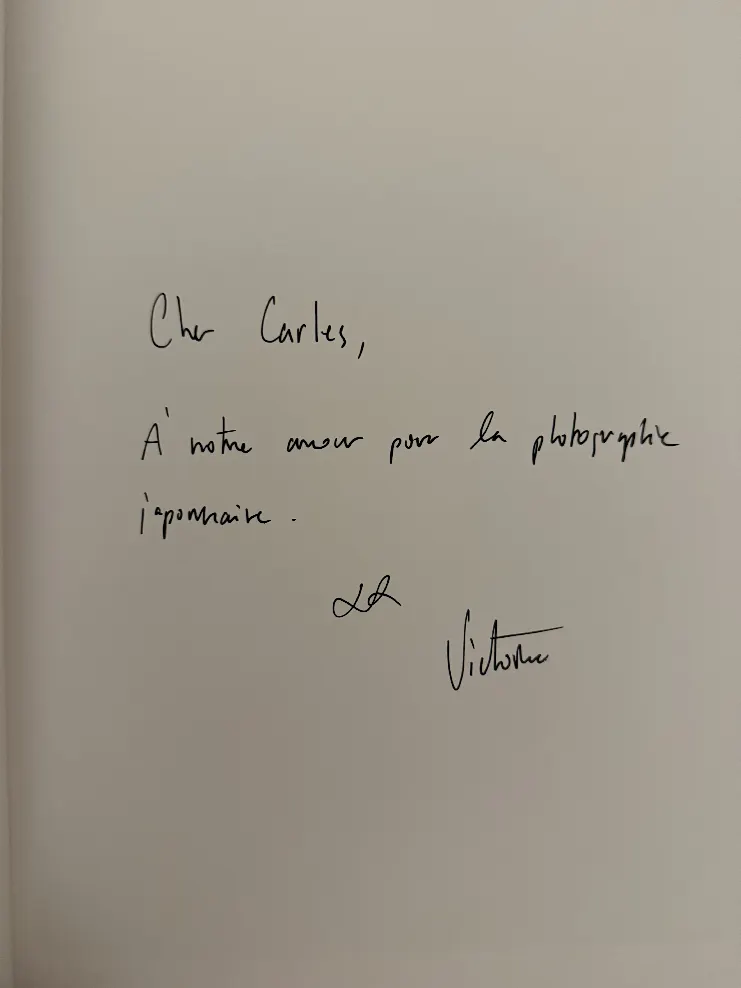 Cher Carles,
À notre amour pour la photographie
japonnaise.
Victoire